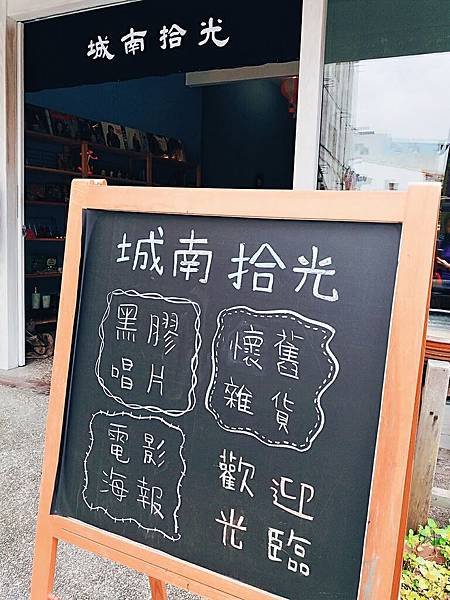 城南拾光
城南拾光
黑膠
唱片
懷舊
雜貨
電影
海報
歡迎
光臨